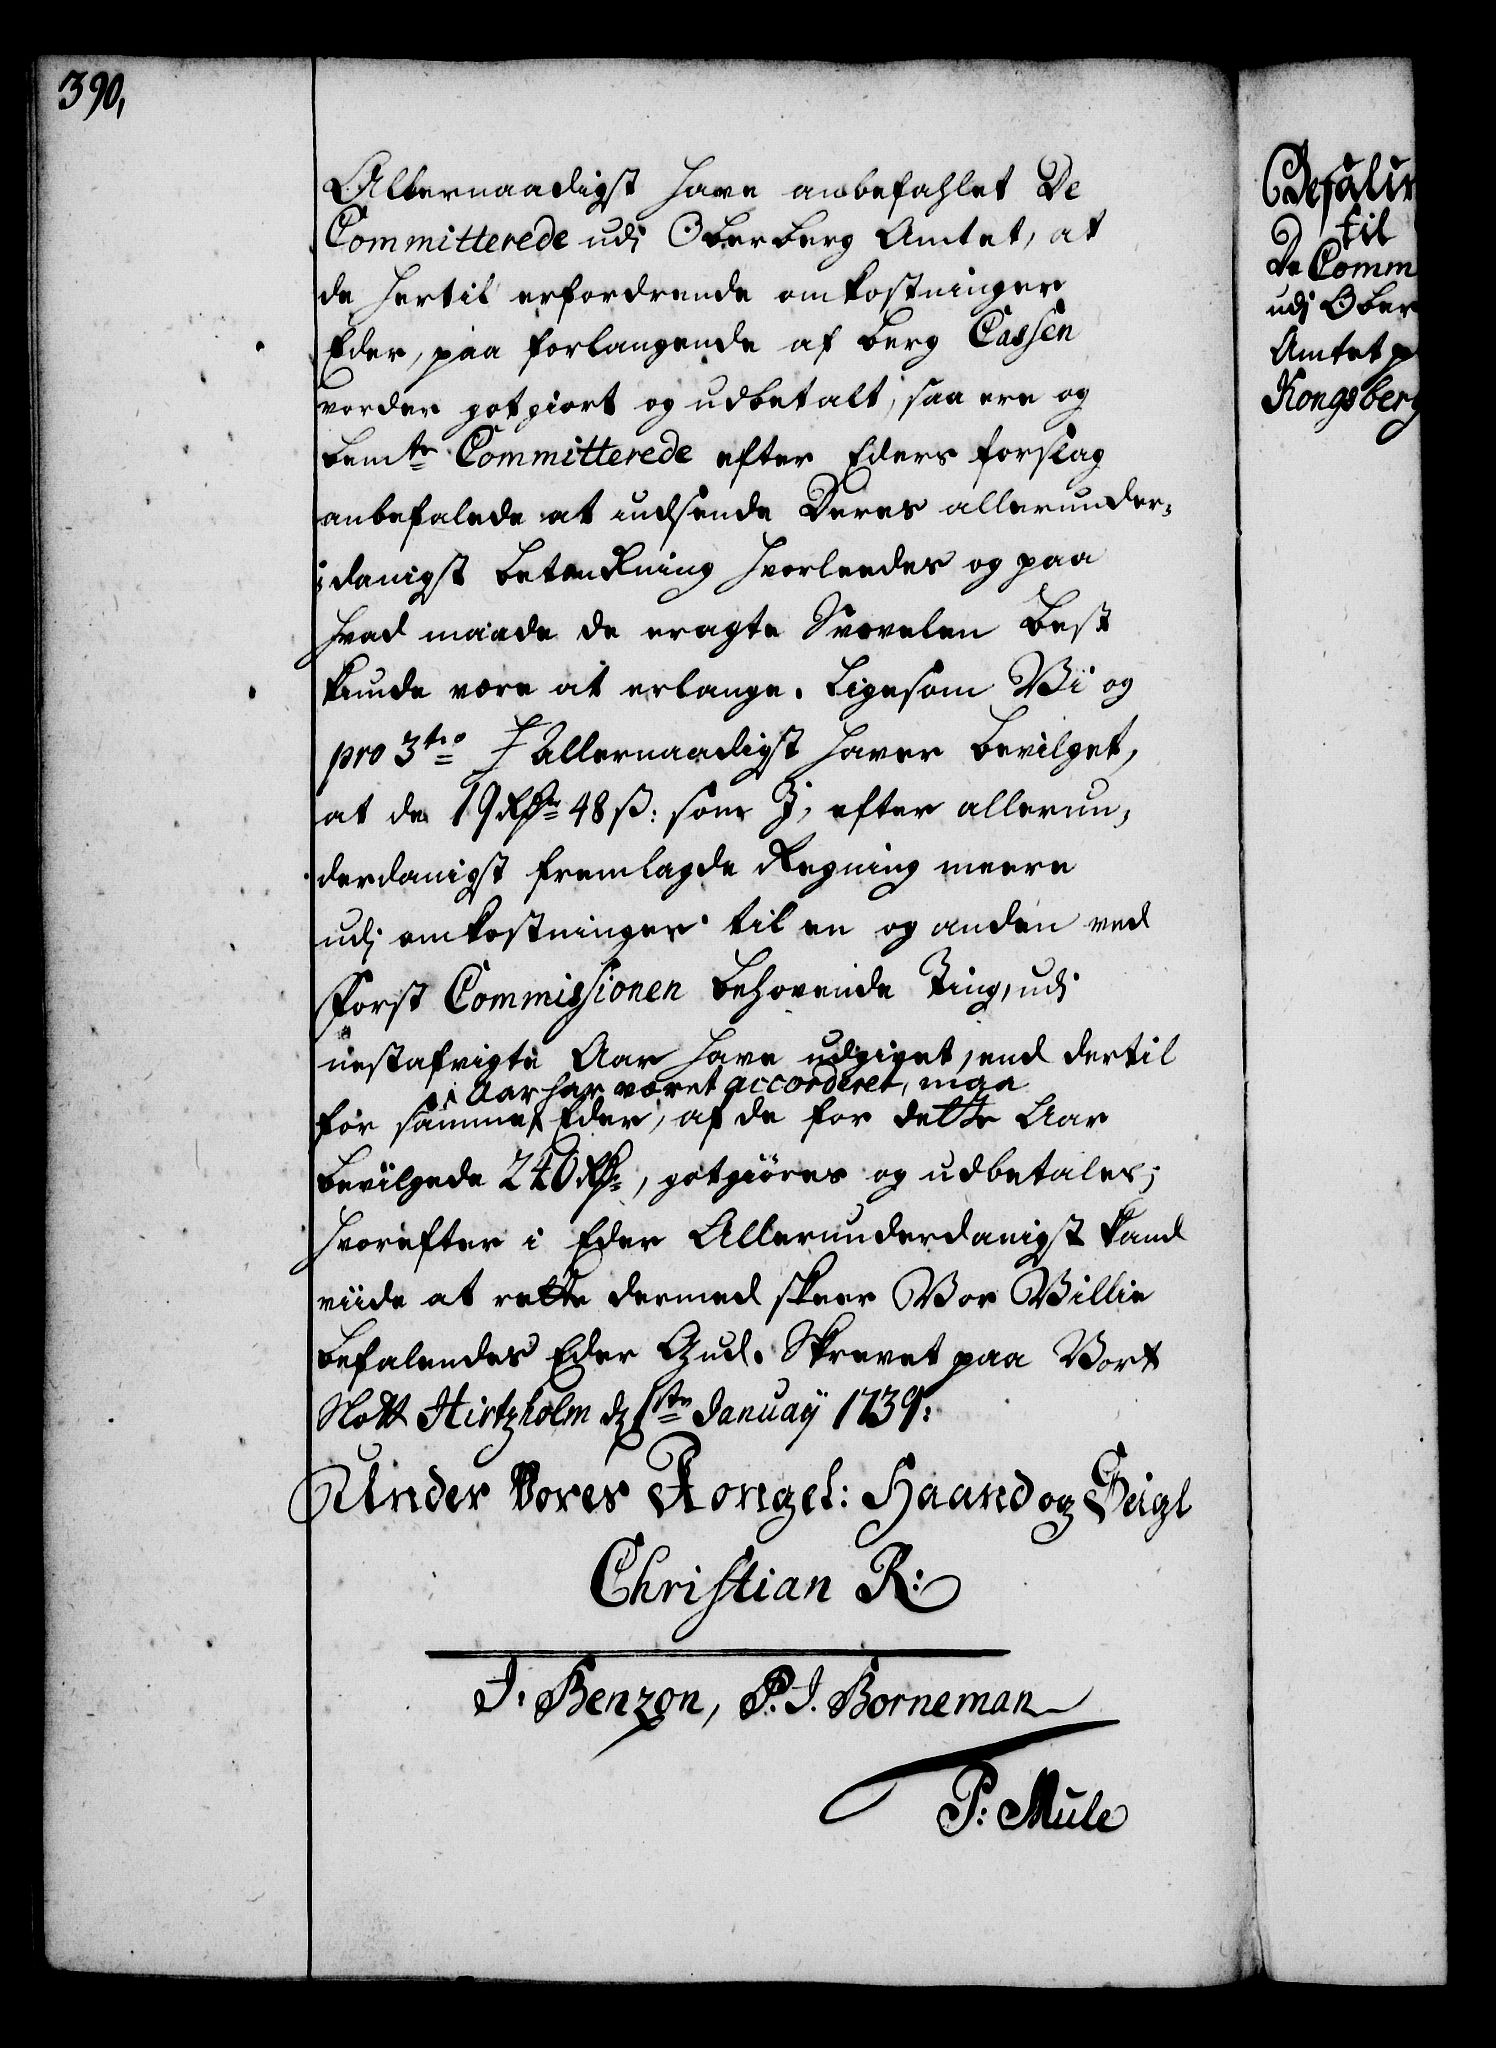 390,
Allernaadigst have anbefahlet De
Committerede udj Oberberg Amtet, at
de hertil erfordrende omkostninger
Eder, paa forlangende af berg Cassen
vorder gotgiort og udbetalt, saa ere og
bemte Committerede efter Eders forslag
anbefalede at indsende Deres allerunder-
danigst betænkning hvorleedes og paa
hvad maade de eragte Svovelen best
kunde være at erlange. Ligesom Vi og
pro 3tio Allernaadigst haver bevilget,
at de 19 Rdr 48 ß: som I, efter allerun-
derdanigst fremlagde Regning meere
udj omkostninger til en og anden ved
Forst Commissionen behovende Ting, udj
nestafvigte Aar have udgivet, end dertil
i Aar har været accorderet, maa
for samme Eder, af de for dette Aar
bevilgede 240 Rdr, gotgiöres og udbetales;
hvorefter i Eder Allerunderdanigst kand
viide at rette dermed skeer Vor Villie
befalendes Eder Gud. Skrevet paa Vort
Slott Hirtzholm d 1ste January 1739.
Under Vores Kongel: Haand og Seigl
Christian R:
J. Benzon, P. J. Borneman
P: Mule
Befaling
til
De Comm
udj Ober
Amtet p
Kongsberg